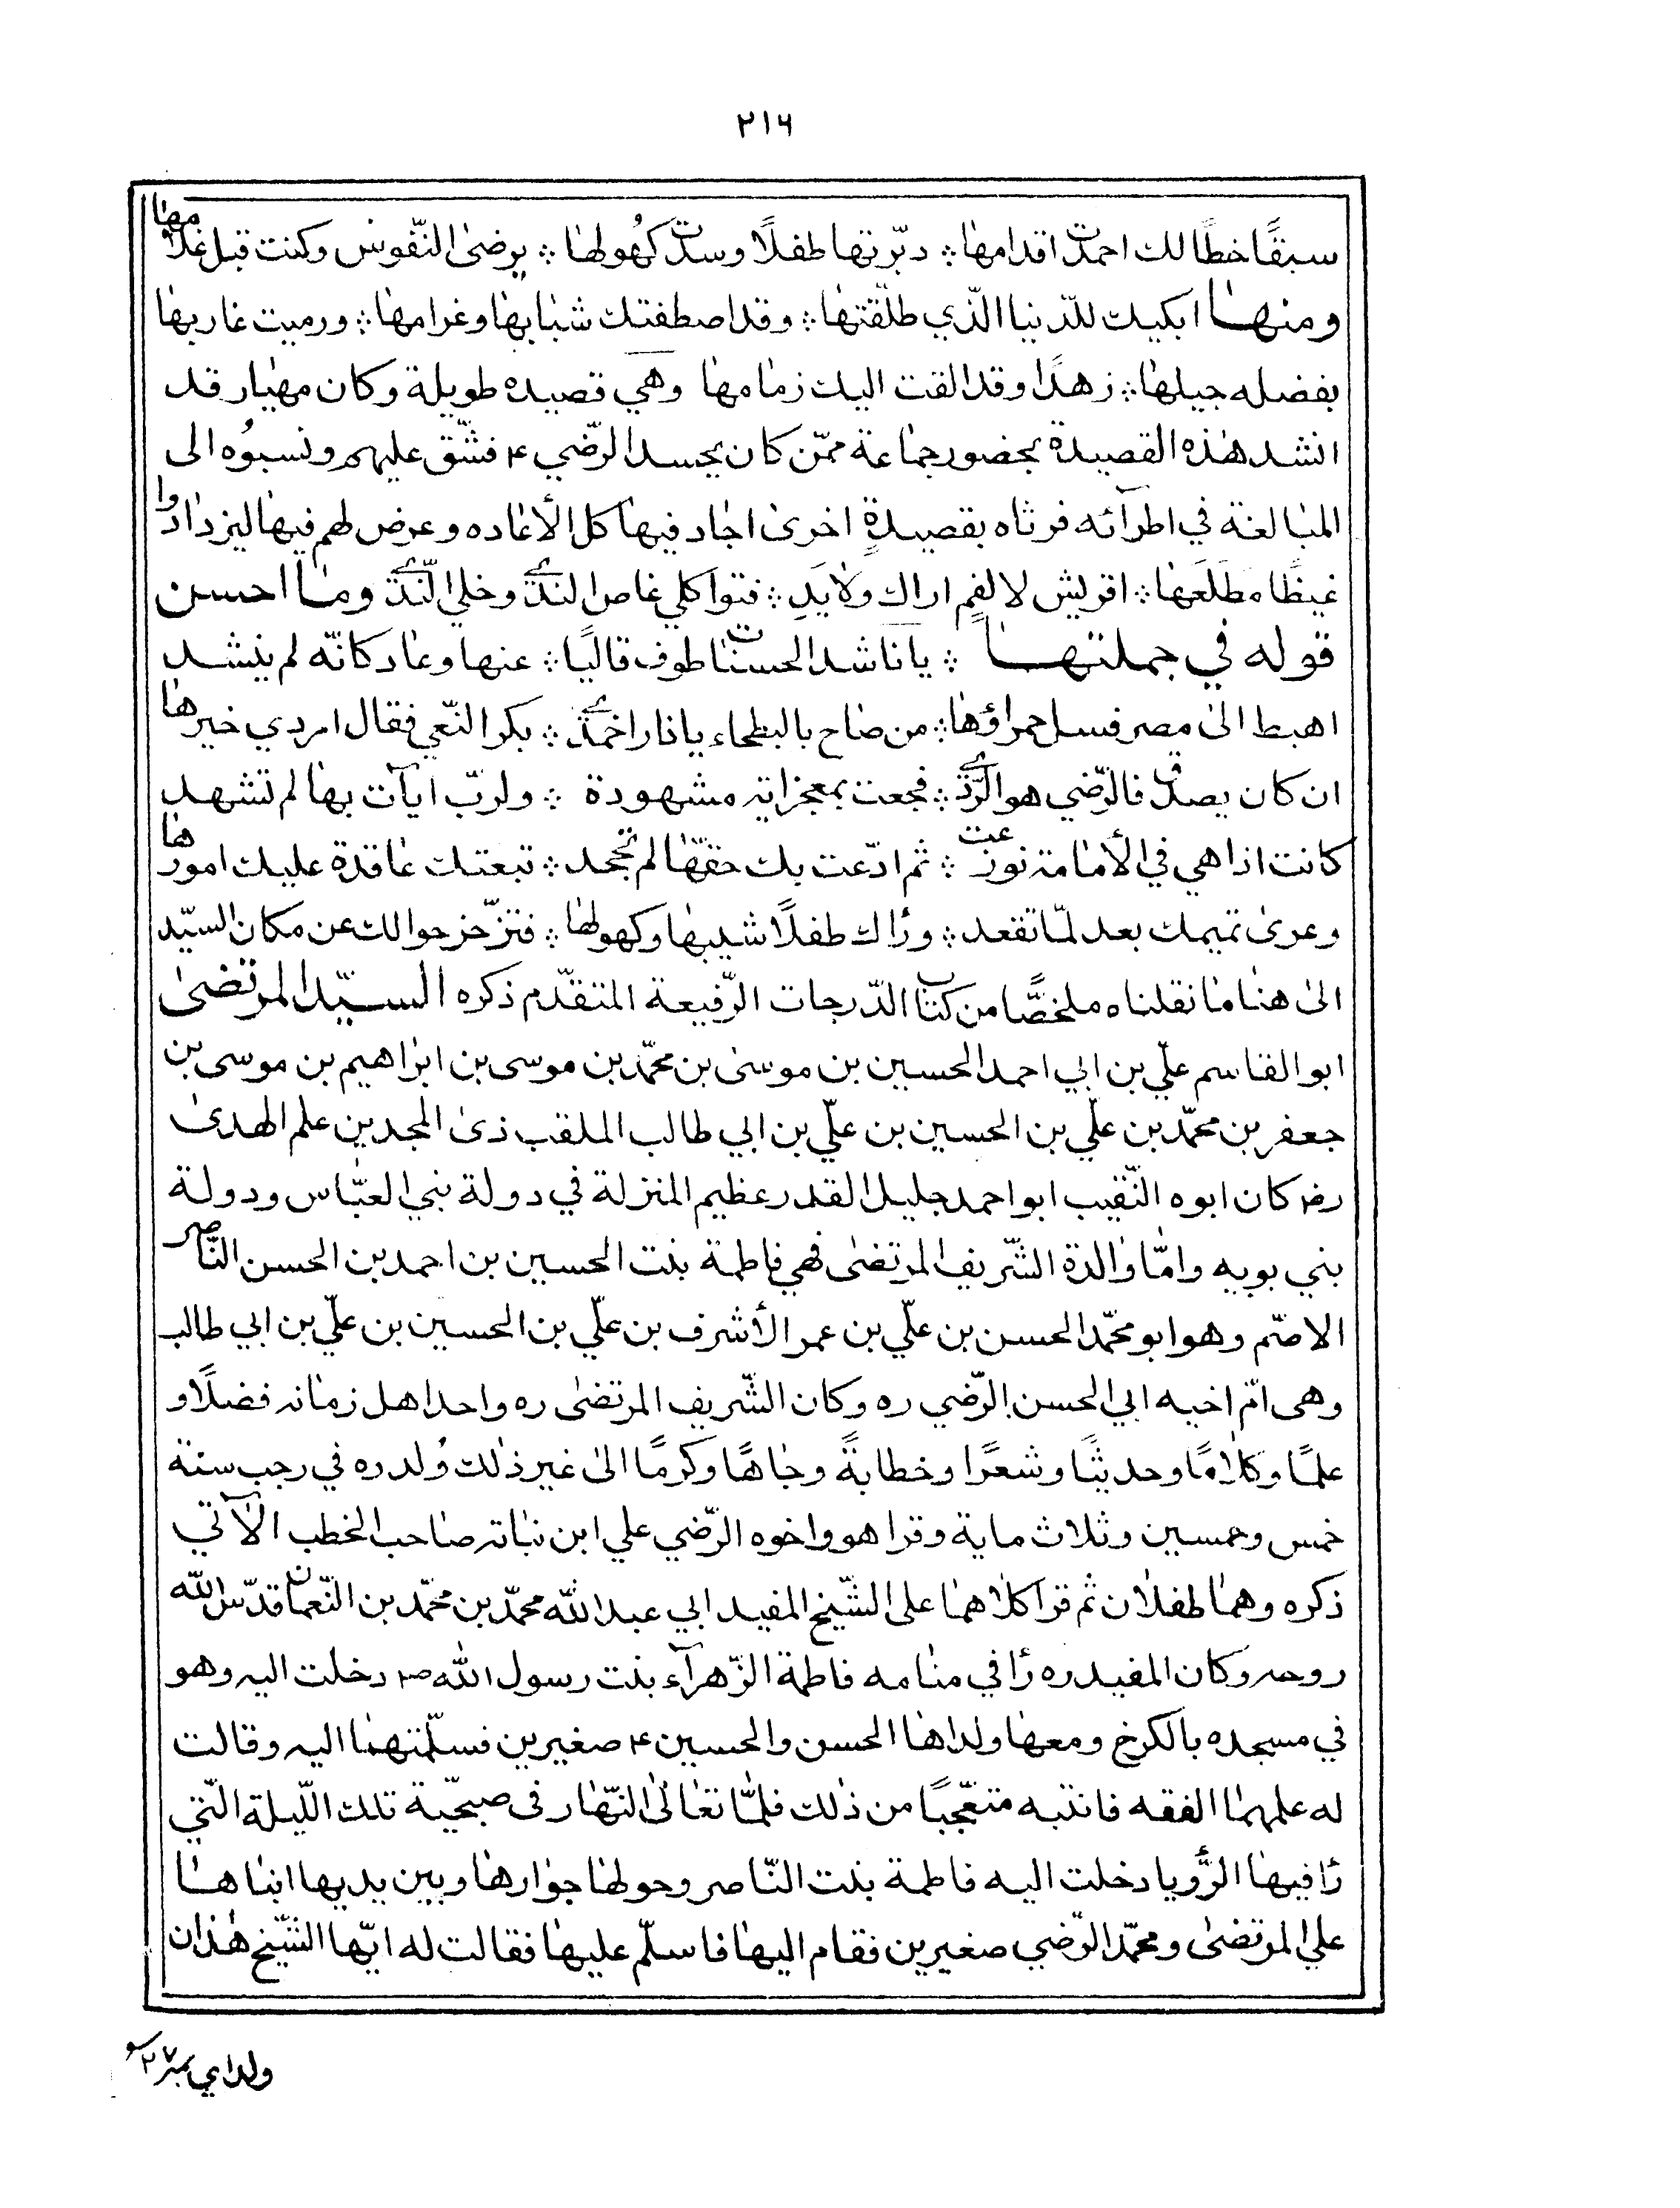 ٢١٦
سبقًا خطًا لك احمدت اقدامها ؞ دبّرتها طفلًا وسدت كهُولها ؞ برضى النّفوس وكنت قبل غلامها
ومنها ابكيك للدّنيا الّذي طلّقتها ؞ وقد اصطفتك شبابها وغرامها ؞ ورميت غاربها
بفضله حبلها ؞ زهدًا وقد القت اليك زمامها وهي قصيده طويلة وكان مهيار قد
انشد هذه القصيدة بحضور جماعة ممّن كان يحسد الرّضي ع فشّق عليهم ونسبوُه الى
المبالغة في اطرآئه فرثاه بقصيدةٍ اخرى اجاد فيها كل الأعاده وعرض لهم فيها ليزدادوا
غيظًا مطلعها ؞ اقريش لا لفمٍ اراك ولا يَدِ ؞ فتواكلي غاص النّدى وخلي النّدى وما احسن
قوله في جملتها ؞ يا ناشد الحسنات طوف قاليًا ؞ عنها وعاد كانّه لم ينشد
اهبط الى مصر فسل حمراؤها ؞ من صاح بالبطحاء يا نار اخمدى ؞ بكر النّعي فقال امردي خيرها
ان كان يصدق فالرّضي هو الرّدى ؞ فجعت بمعجزاته مشهودة ؞ ولربّ ايآت بها لم تشهد
كانت اذا هي في الأمامة نوزعت ؞ ثم ادّعت بك حقّها لم تجحد ؞ تبعتك عاقدة عليك امورها
وعرى تميمك بعد لمّا تقعد ؞ ورٔاك طفلًا شيبها وكهولها ؞ فتزّحزحوا لك عن مكان السيّد
الى هنا ما نقلناه ملخصًّا من كتاب الدّرجات الرّفيعة المتقدّم ذكره السيّد المرتضى
ابو القاسم علّي بن ابي احمد الحسين بن موسى بن محمّد بن موسى بن ابراهيم بن موسى بن
جعفر بن محمّد بن علّي بن الحسين بن علّي بن ابي طالب الملقب ذى المجدين علم الهدى
رض كان ابوه النّقيب ابو احمد جليل القدر عظيم المنزلة في دولة بني العبّاس ودولة
بني بويه وامّا والدة الشّريف المرتضى فهي فاطمة بنت الحسين بن احمد بن الحسن النّاصر
الاصّم وهو ابو محمّد الحسن بن علّي بن عمر الأشرف بن علّي بن الحسين بن علّي بن ابي طالب
وهى امّ اخيه ابي الحسن الرّضي ره وكان الشّريف المرتضى ره واحد اهل زمانه فضلًا و
علمًا وكلامًا وحديثًا وشعرًا وخطابةً وجاهًا وكرمًا الى غير ذلك وُلد ره في رجب سنة
خمس وخمسين وثلاث ماية وقرا هو واخوه الرّضي علي ابن نباته صاحب الخطب الآتي
ذكره وهما طفلان ثم قرا كلاهما على الشّيخ المفيد ابي عبد الله محمّد بن محمّد بن النّعمان قدّس الله
روحه وكان المفيد ره رٔا في منامه فاطمة الزّهرآء بنت رسول الله ص دخلت اليه وهو
في مسجده بالكرخ ومعها ولداها الحسن والحسين ع صغيرين فسلّمتهما اليه وقالت
له علمهما الفقه فانتبه متعّجبًا من ذلك فلمّا تعالى النّهار فى صبحيّة تلك اللّيلة الّتي
رٔا فيها الرُّويا دخلت اليه فاطمة بنت النّاصر وحولها جوارها وبين يديها ابناها
علي المرتضى ومحمّد الرّضي صغيرين فقام اليها فا سلّم عليها فقالت له ايّها الشّيخ هذان
ولداي